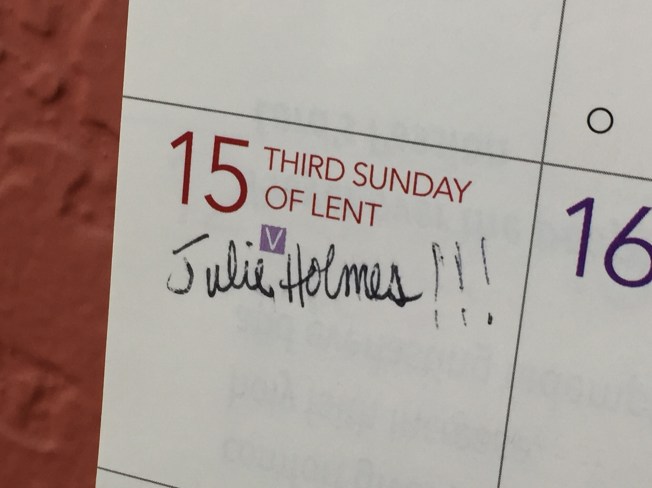 15 THIRD SUNDAY
OF LENT
V
Julie Holmes!!!
16